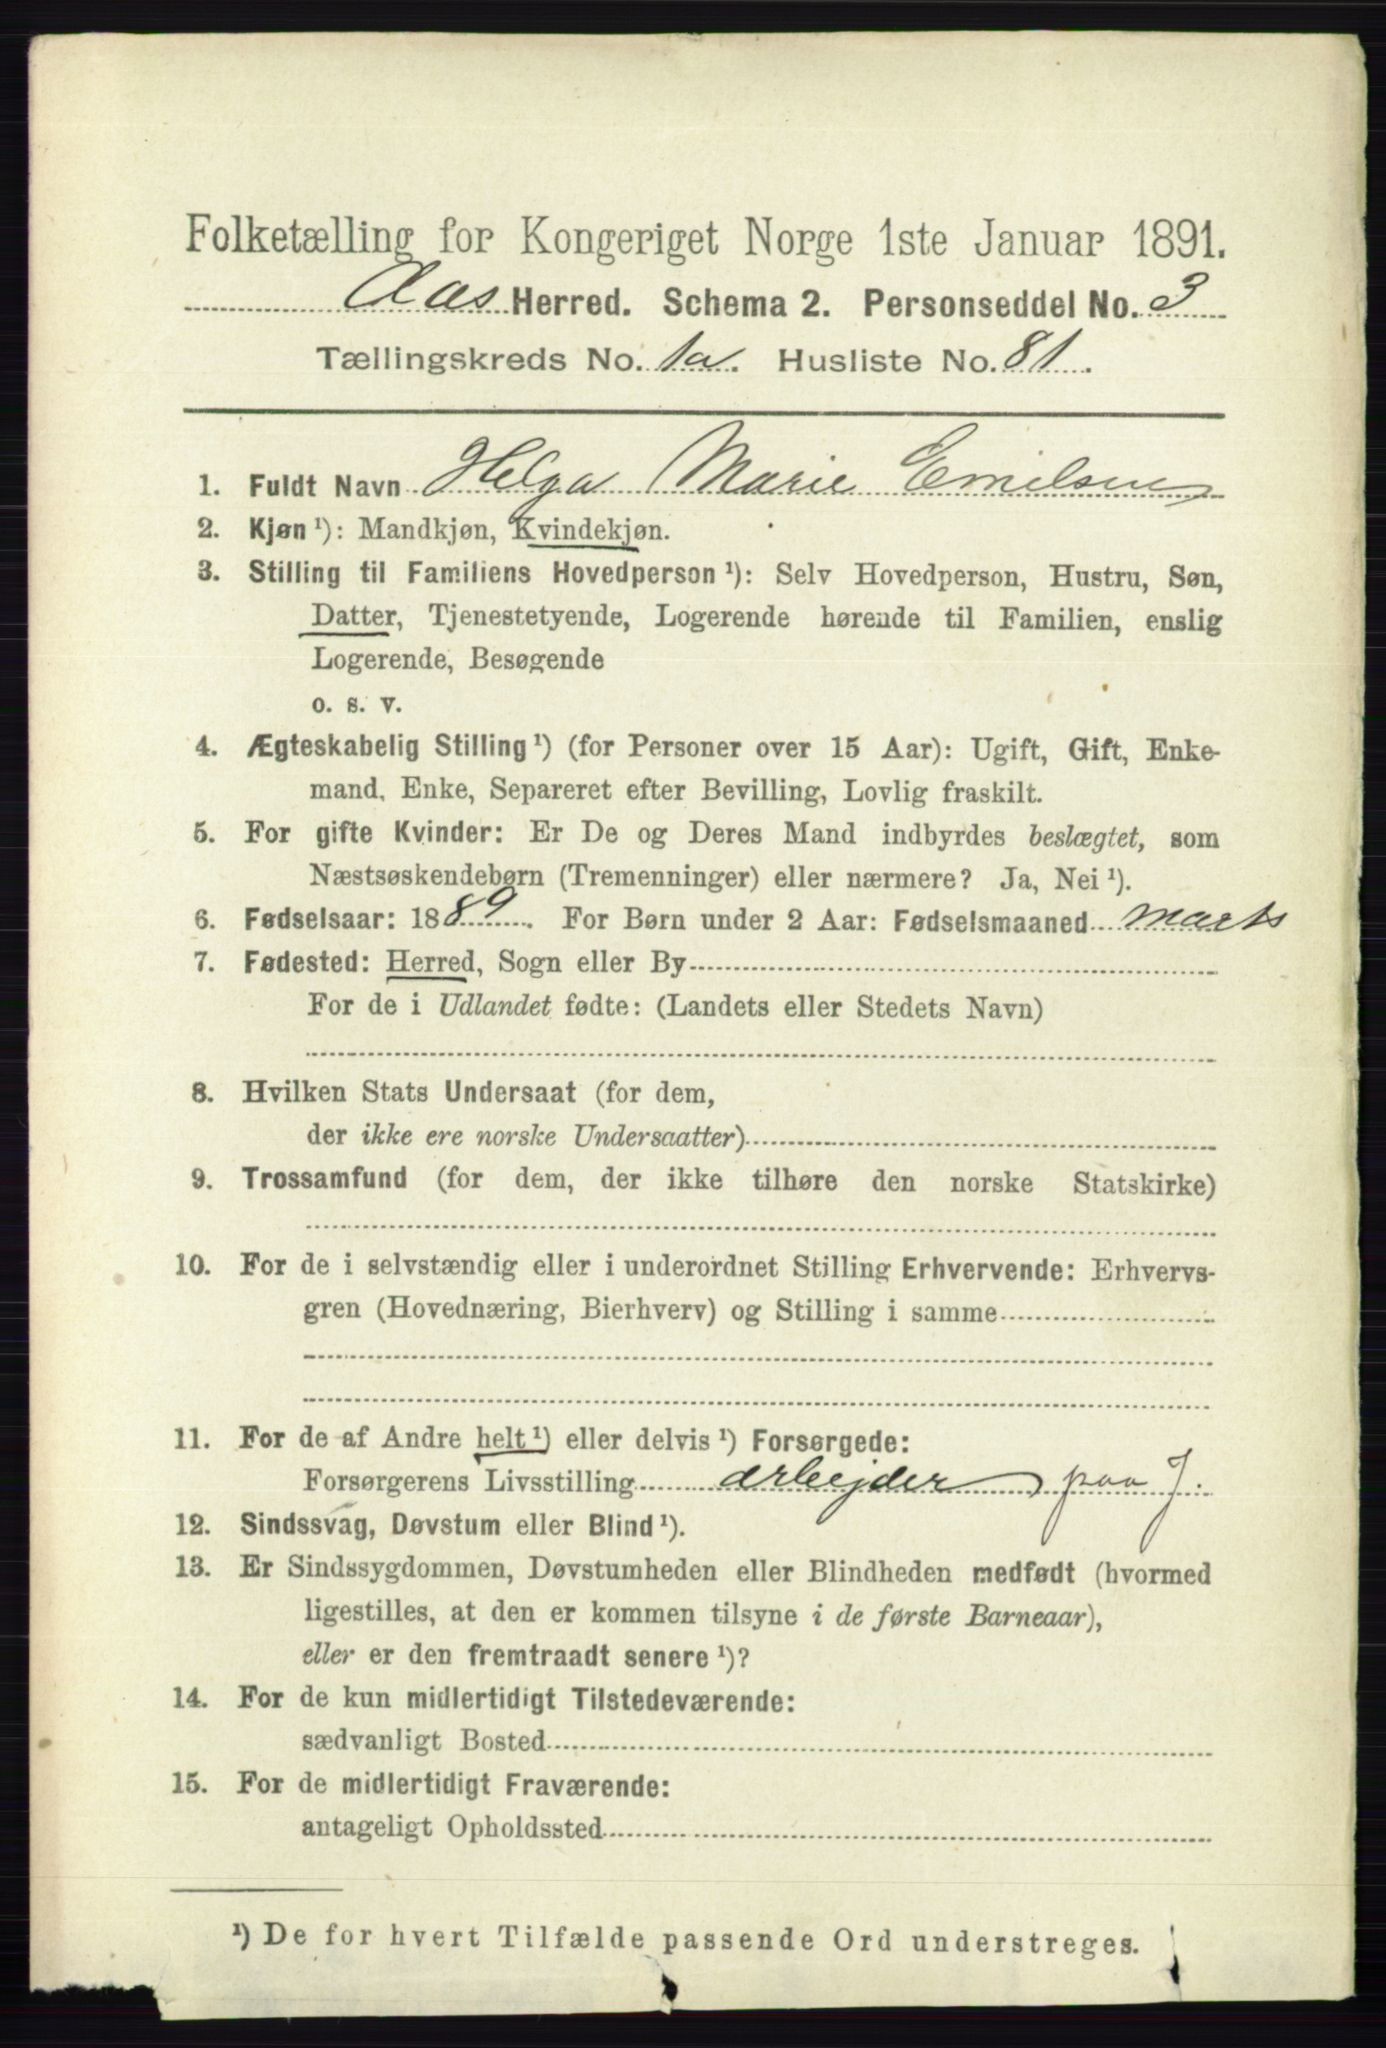 Folketælling for Kongeriget Norge 1ste Januar 1891.
Aas Herred. Schema 2. Personseddel No. 3
Tællingskreds No. 1a. Husliste No. 81.
1. Fuldt Navn Helga Marie Emilsen
2. Kjøn ¹): Mandkjøn, Kvindekjøn.
3. Stilling til Familiens Hovedperson ¹): Selv Hovedperson, Hustru, Søn,
Datter, Tjenestetyende, Logerende hørende til Familien, enslig
Logerende, Besøgende
o. s. v.
4. Ægteskabelig Stilling ¹) (for Personer over 15 Aar): Ugift, Gift, Enke-
mand, Enke, Separeret efter Bevilling, Lovlig fraskilt.
5. For gifte Kvinder: Er De og Deres Mand indbyrdes beslægtet, som
Næstsøskendebørn (Tremenninger) eller nærmere? Ja, Nei ¹).
6. Fødselsaar: 1889. For Børn under 2 Aar: Fødselsmaaned marts
7. Fødested: Herred, Sogn eller By
For de i Udlandet fødte: (Landets eller Stedets Navn)
8. Hvilken Stats Undersaat (for dem,
der ikke ere norske Undersaatter)
9. Trossamfund (for dem, der ikke tilhøre den norske Statskirke)
10. For de i selvstændig eller i underordnet Stilling Erhvervende: Erhvervs-
gren (Hovednæring, Bierhverv) og Stilling i samme
11. For de af Andre helt ¹) eller delvis ¹) Forsørgede:
Forsørgerens Livsstilling arbejder paa J.
12. Sindssvag, Døvstum eller Blind ¹).
13. Er Sindssygdommen, Døvstumheden eller Blindheden medfødt (hvormed
ligestilles, at den er kommen tilsyne i de første Barneaar),
eller er den fremtraadt senere ¹)?
14. For de kun midlertidigt Tilstedeværende:
sædvanligt Bosted
15. For de midlertidigt Fraværende:
antageligt Opholdssted
¹) De for hvert Tilfælde passende Ord understreges.